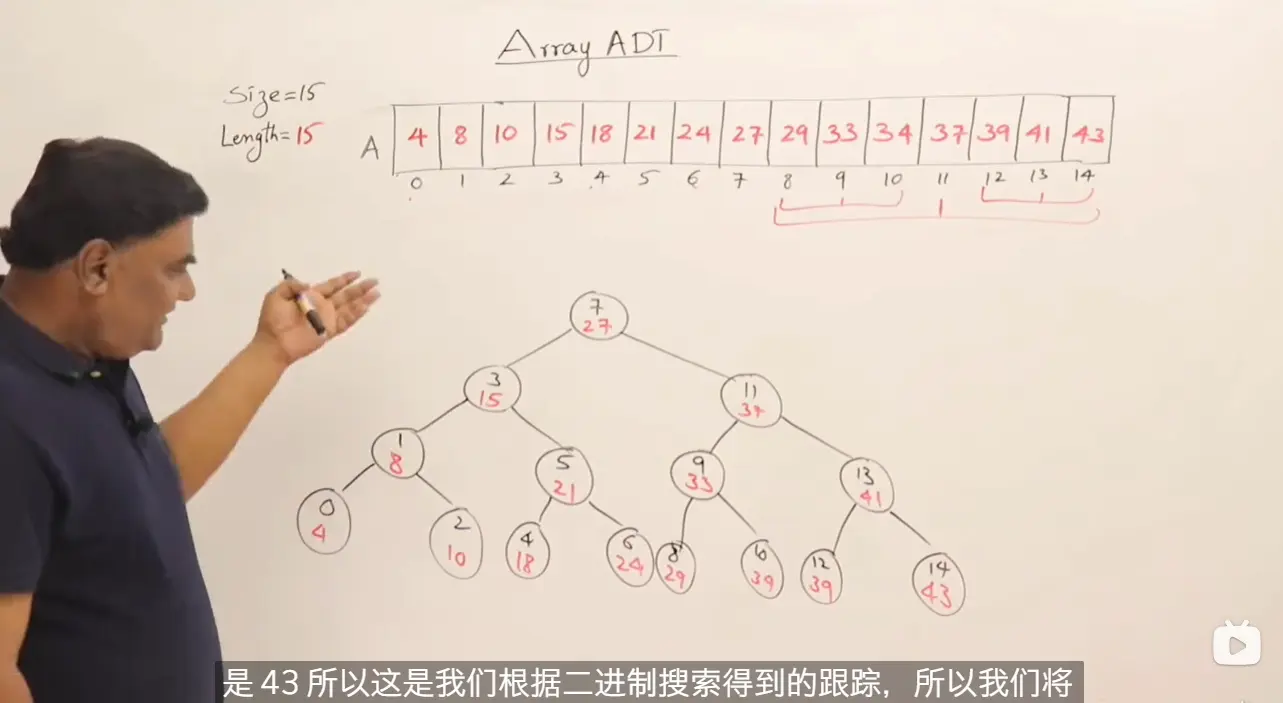 Array ADT
Size=15
Length=15
A
4 8 10 15 18 21 24 27 29 33 34 37 39 41 43
0 1 2 3 4 5 6 7 8 9 10 11 12 13 14
7
27
3
15
11
37
1
8
5
21
9
33
13
41
0
4
2
10
4
18
6
24
8
29
10
39
12
39
14
43
是 43 所以这是我们根据二进制搜索得到的跟踪，所以我们将